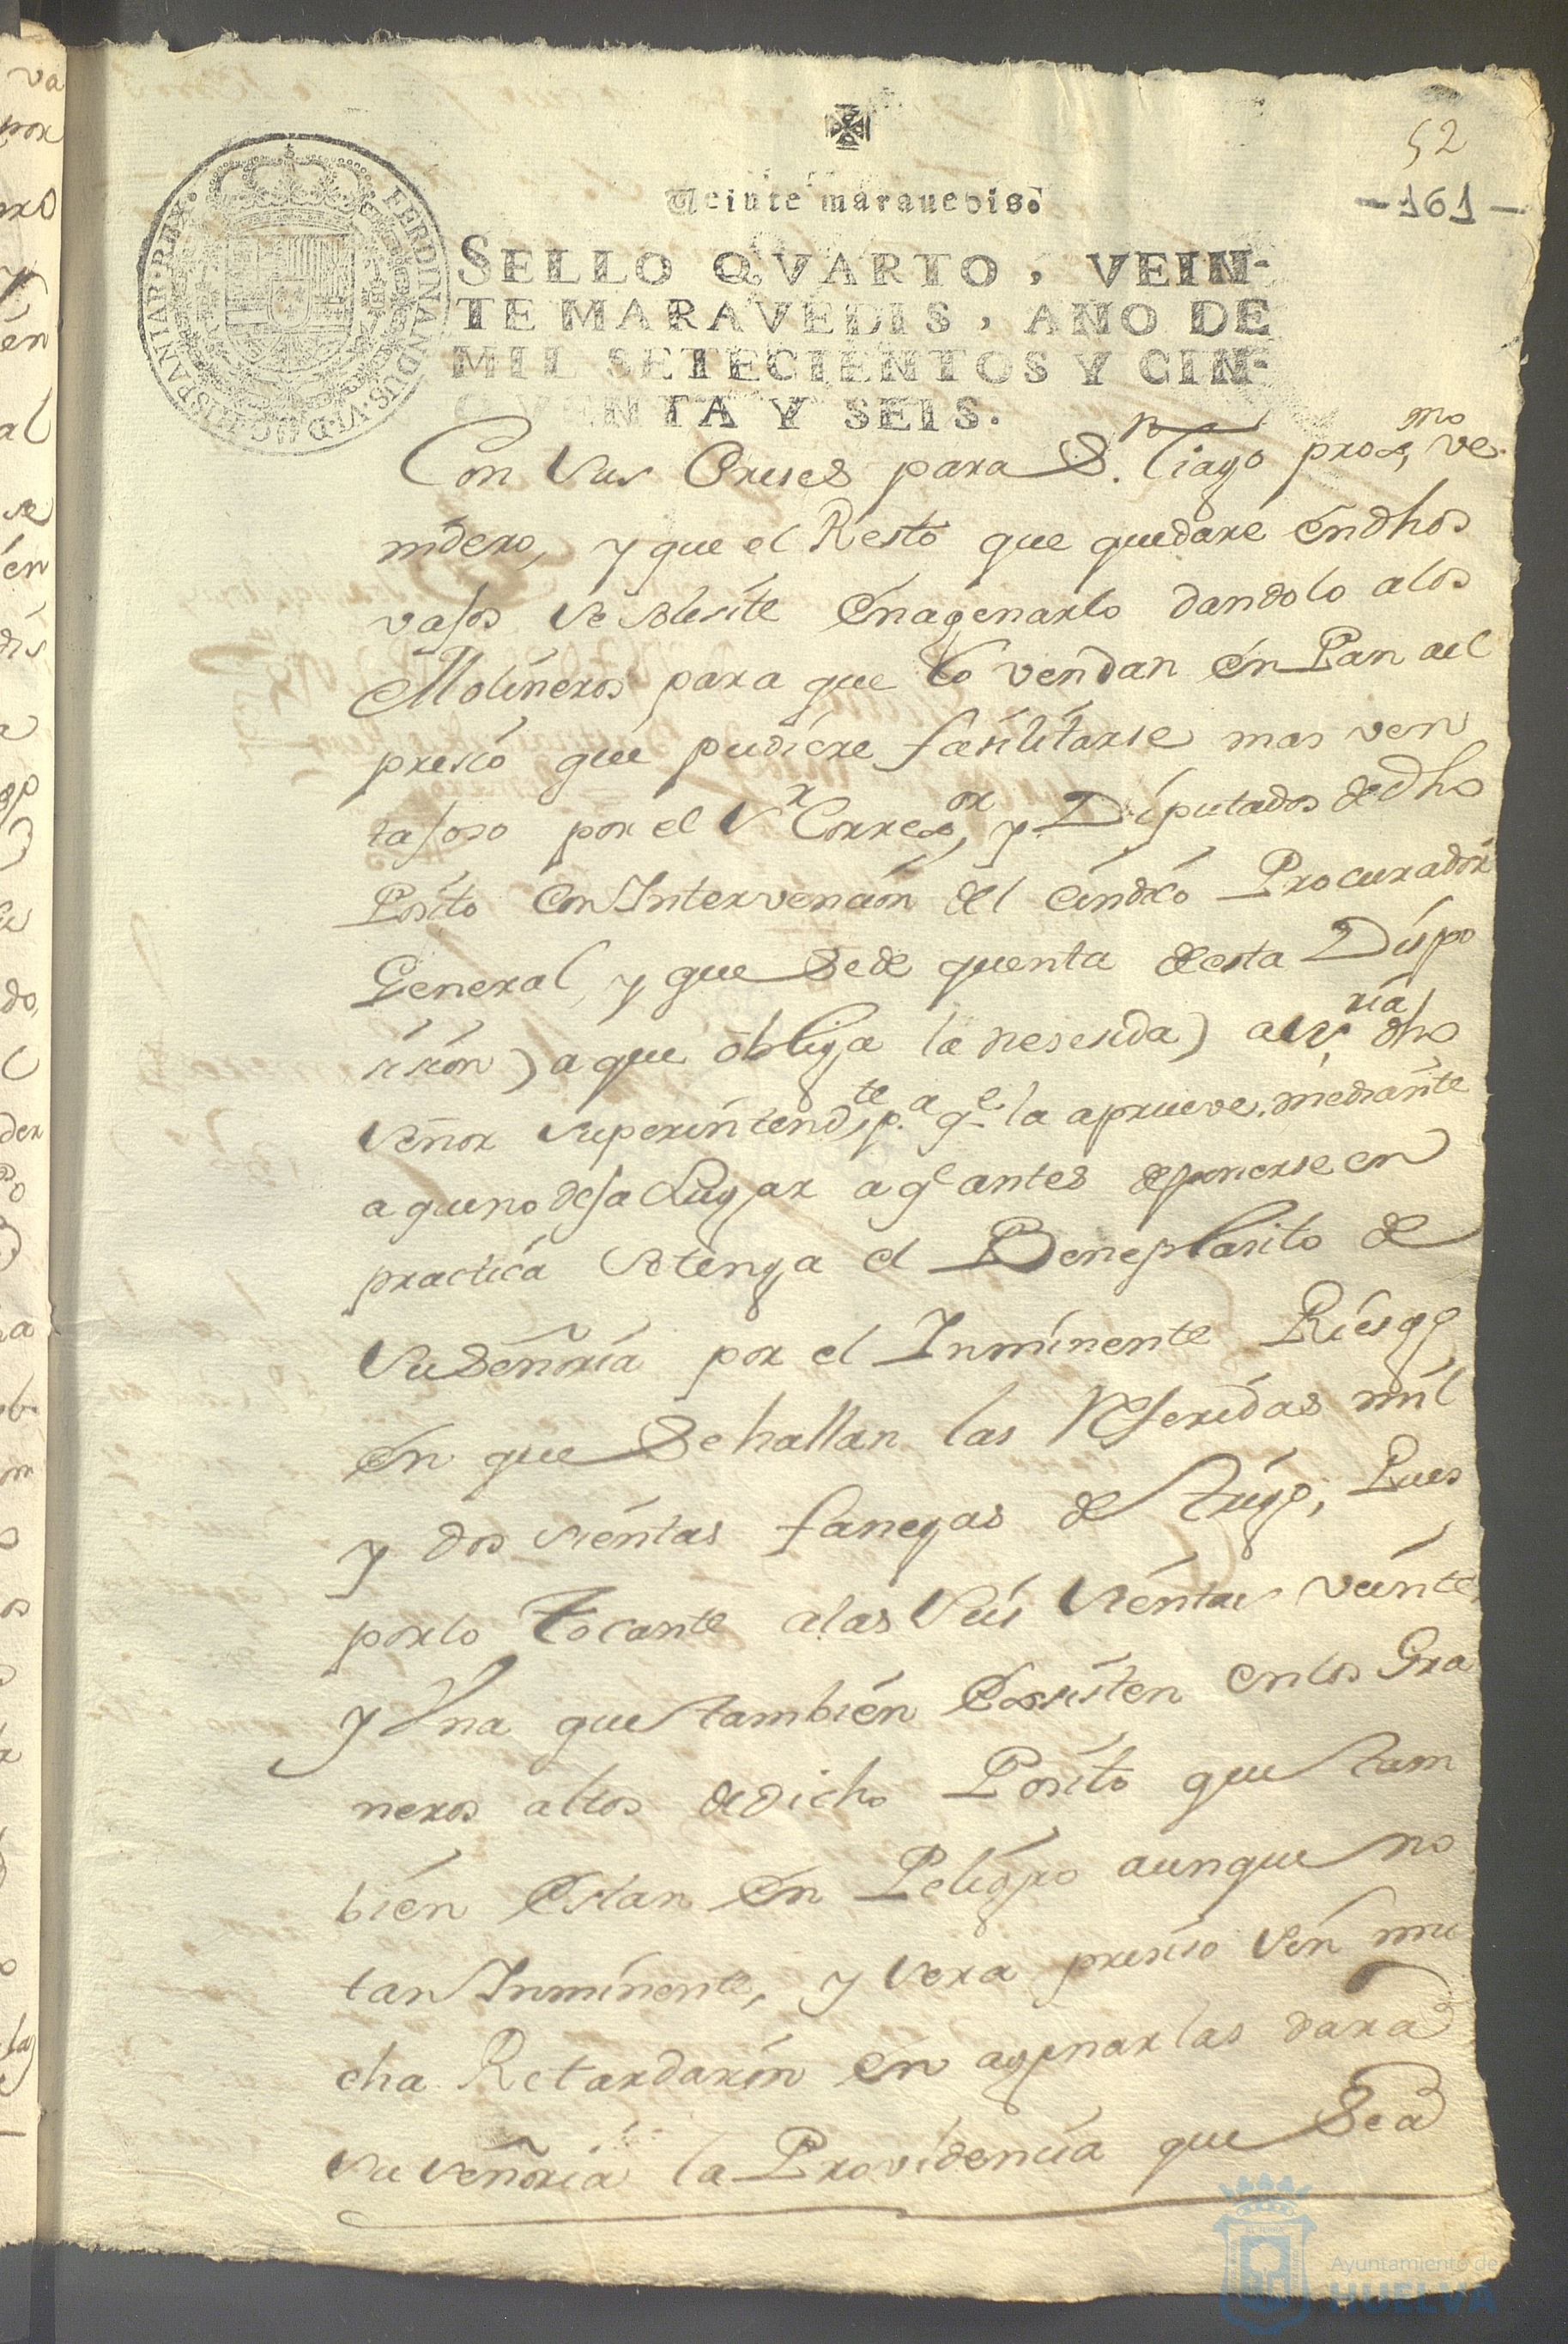 52
-161-
Veinte marauedis.
SELLO QVARTO, VEIN-
TE MARAVEDIS, AÑO DE
MIL SETECIENTOS Y CIN-
CVENTA Y SEIS.
FERDINANDUS·VI·D·G·HISPANIAR·REX·
Con sus Creses para Sn. Tiago proxmo, ve-
nidero, y que el Resto que quedare en dhos
vasos se solisite Enagenarlo dandolo a los
Molineros para que lo vendan en Pan al
presio que pudiere fasilitarse mas ven
tajoso por el Sr Correxor, y Diputados de dho
Posito con Intervencion del Cindico Procurador
General, y que se de quenta de esta Dispo
sision) a que obliga la nesesida) a su ria dho
señor superintendte, pa. qe. la aprueve, mediante
a que no deja Lugar a qe antes de ponerse en
practica se tenga el Beneplasito de
su Señoria por el Inminente Riesgo
en que se hallan las Referidas mil
y dos sientas fanegas de trigo, Pues
por lo tocante a las seis sientas veinte
y Una que tambien Exsisten en los Gra
neros altos de dicho Posito que tam
bien estan en Peligro aunque no
tan Inminente, y sera presiso sin mu
cha Retardasion en agenarlas dara
su señoria la Providencia que Sea
Ayuntamiento de
HUELVA